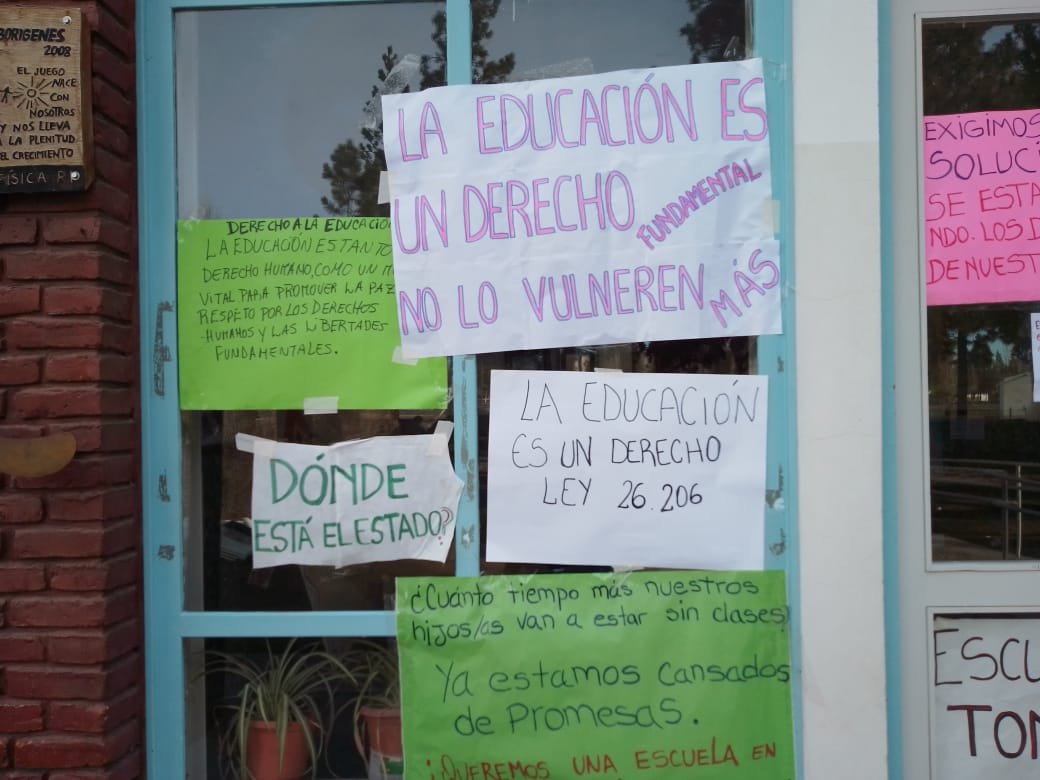 BORIGENES
2008
EL JUEGO
NACE
CON
NOSOTROS
Y NOS LLEVA
A LA PLENITUD
EL CRECIMIENTO
FÍSICA
DERECHO A LA EDUCACIO
LA EDUCACIÓN ES TANTO
DERECHO HUMANO, COMO UN M
VITAL PARA PROMOVER LA PAZ
RESPETO POR LOS DERECHOS
HUMANOS Y LAS LIBERTADES
FUNDAMENTALES.
LA EDUCACIÓN ES
UN DERECHO
FUNDAMENTAL
NO LO VULNEREN MÁS
DÓNDE
ESTÁ EL ESTADO?
LA EDUCACIÓN
ES UN DERECHO
LEY 26.206
¿Cuánto tiempo más nuestros
hijos/as van a estar sin clases?
Ya estamos cansados
de Promesas.
¡QUEREMOS UNA ESCUELA EN
EXIGIMOS
SOLUCI
SE ESTA
NDO. LOS D
DE NUEST
ESCU
TOM